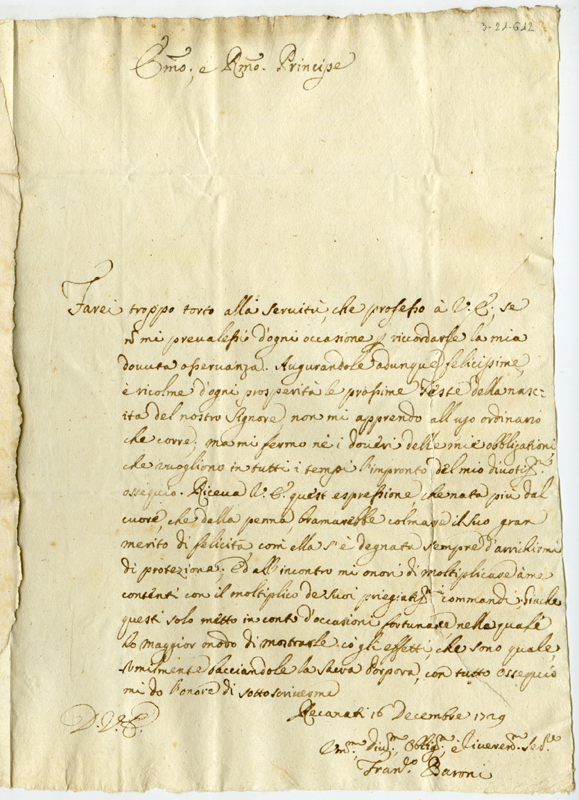 3-21-612
Emo., e Rmo. Principe
Farei troppo torto alla servitù, che professo à V. E., se
nõ mi prevalessi d'ogni occasione p ricordarle la mia
dovuta osservanza. Augurandole adunque felicissime,
e ricolme d'ogni prosperità le prossime Feste dalla nasc=
ita del nostro Signore, non mi apprendo all'uso ordinario
che corre, ma mi fermo nè i doveri delle mie obbligationi,
che vuogliono in tutti i tempi l'impronto del mio divotiss.mo
ossequio. Riceva V. E. quest espressione, che nata più dal
cuore, che dalla penna bramarebbe colmare il suo gran
merito di felicità, com'ella s'è degnata sempre d'arrichirmi
di protezione; Ed all'incontro mi onori di moltiplicare à me
contenti con il moltiplico de suoi priegiatiss.mi commandi. Giache
questi solo metto in conto d'occasioni fortunate nelle quale
hò maggior modo di mostrarle cò gli effetti, che sono quale,
umilmente bacciandole la sacra Porpora, con tutto ossequio
mi do l'onore di sottoscrivermi
D. V. E.
Recanati 16 Decembre 1729
Um.mo Div.mo Oblig.mo e river.mo Ser.re
Fran.co Baroni